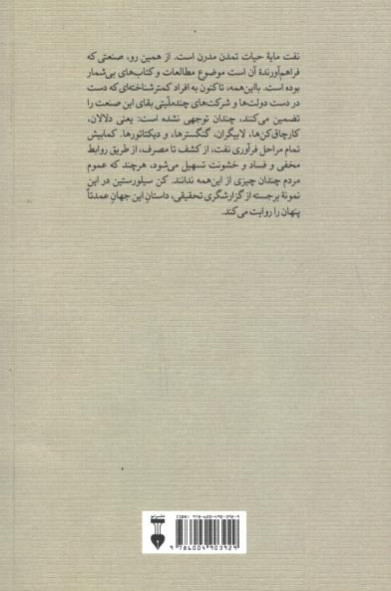 نفت مایهٔ حیات تمدن مدرن است. از همین رو، صنعتی که
فراهم‌آورندهٔ آن است موضوع مطالعات و کتاب‌های بی‌شمار
بوده است. بااین‌همه، تاکنون به افراد کمترشناخته‌ای‌که دست
در دست دولت‌ها و شرکت‌های چندملّیتی بقای این صنعت را
تضمین می‌کنند، چندان توجهی نشده است: یعنی دلالان،
کارچاق‌کن‌ها، لابیگران، گنگسترها، و دیکتاتورها. کمابیش
تمام مراحل فرآوری نفت، از کشف تا مصرف، از طریق روابط
مخفی و فساد و خشونت تسهیل می‌شود، هرچند که عموم
مردم چندان چیزی از این‌همه ندانند. کن سیلورستین در این
نمونهٔ برجسته از گزارشگری تحقیقی، داستانِ این جهانِ عمدتاً
پنهان را روایت می‌کند.
ISBN: 978-600-490-392-9
9 786004 903929